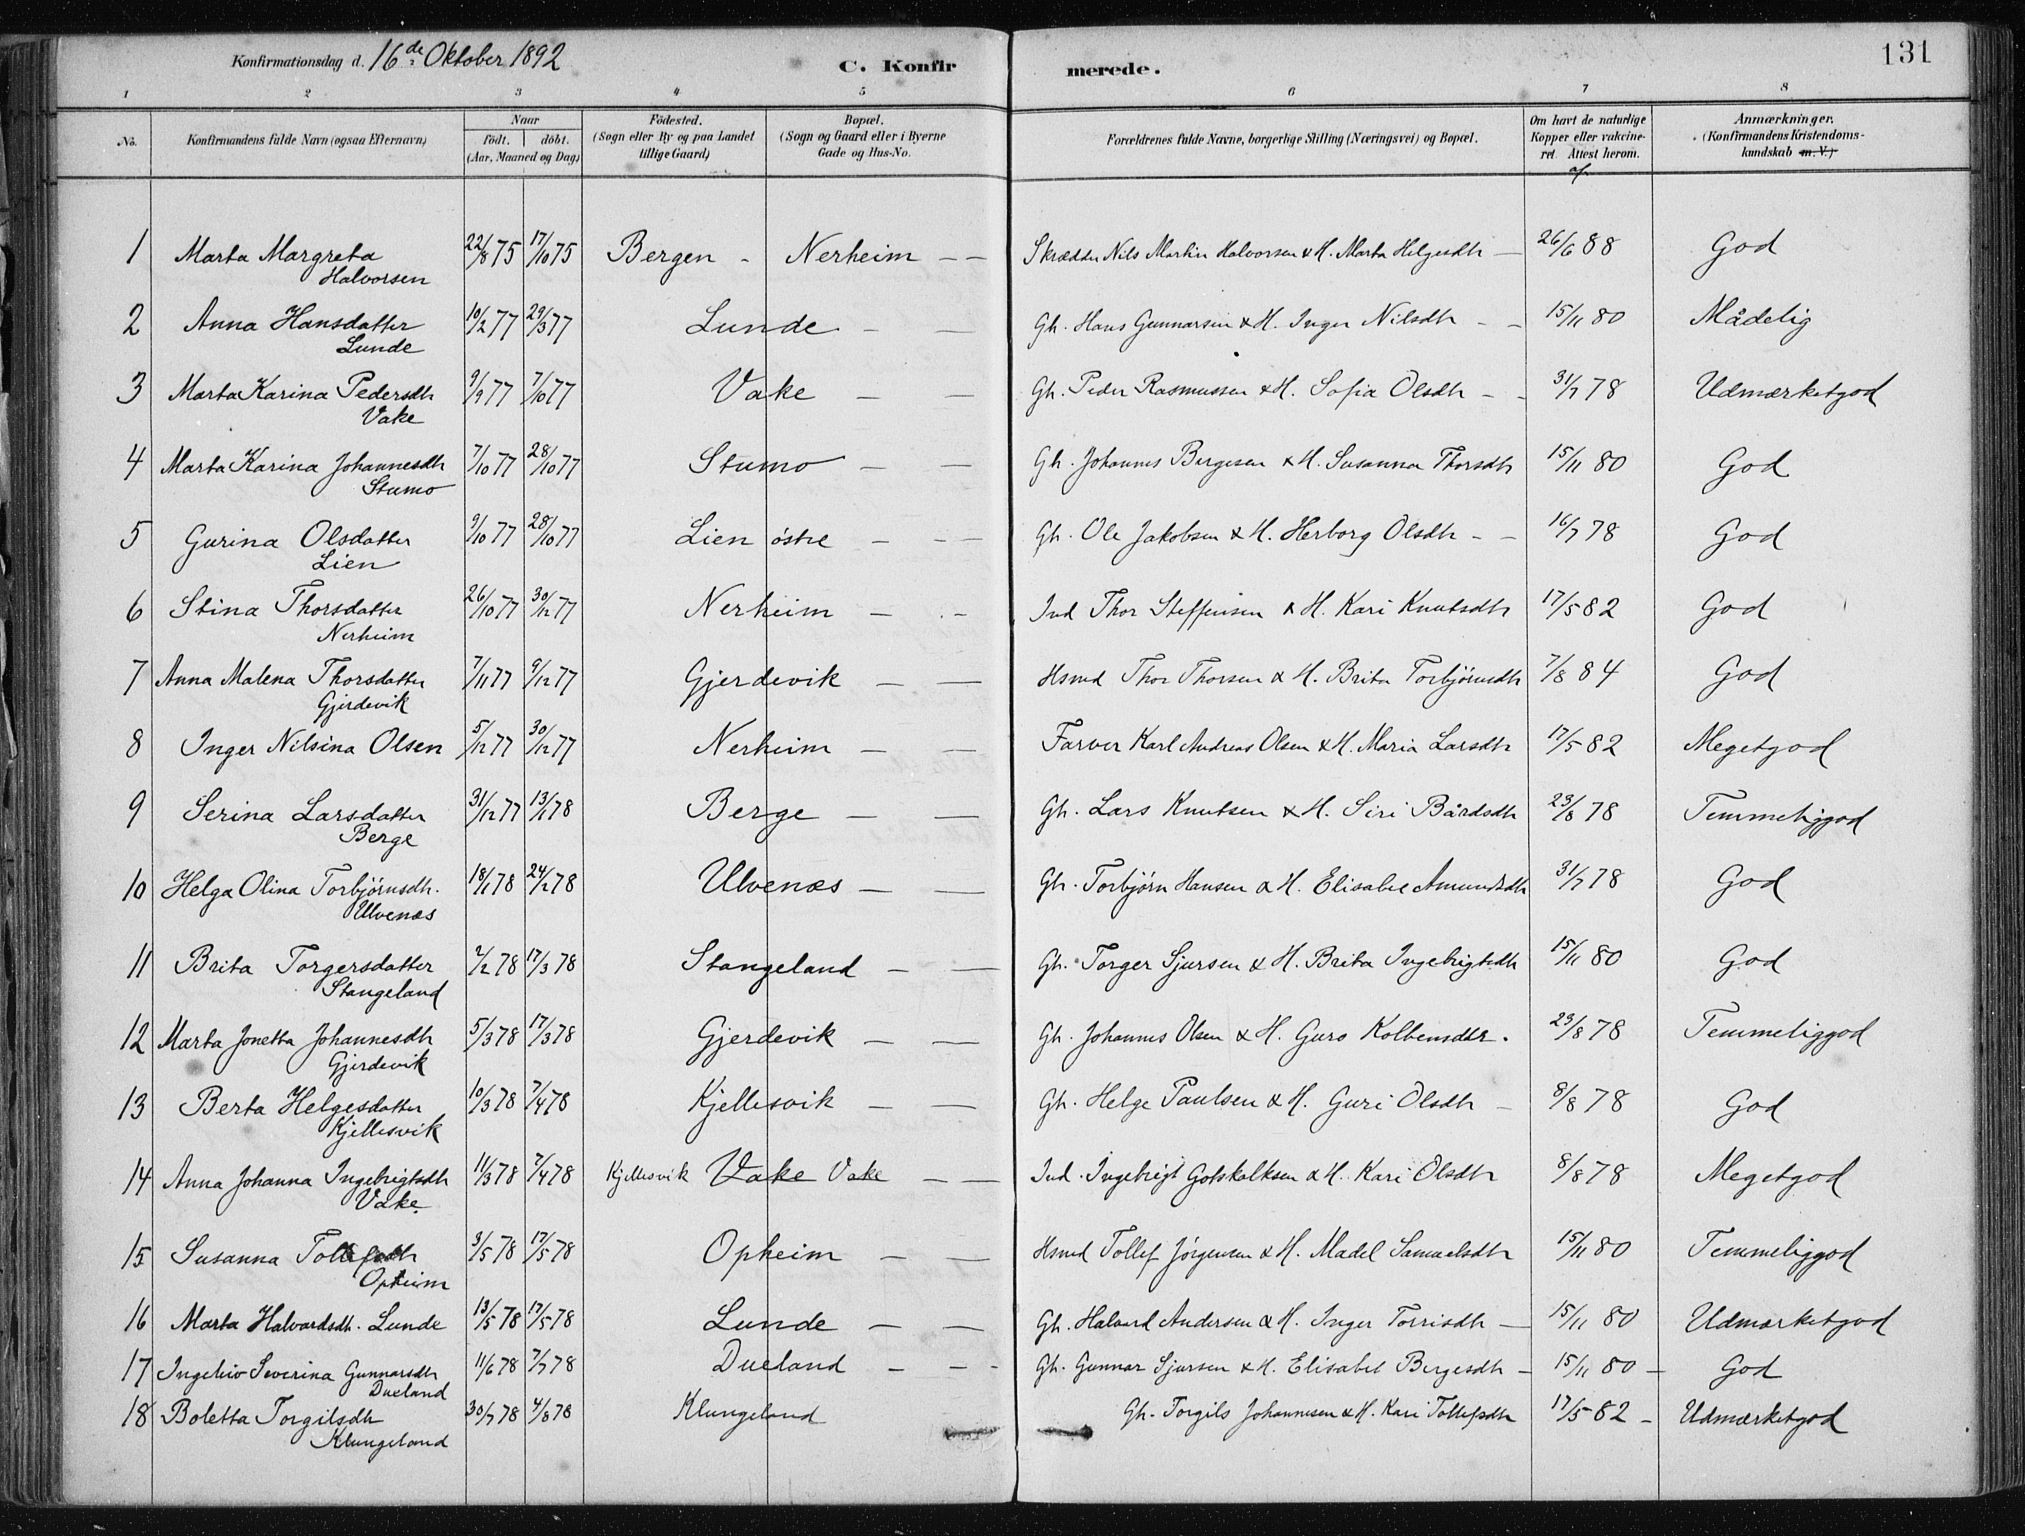 131
Konfirmationsdag d. 16de Oktober 1892
C. Konfirmerede.
1 2 3 4 5 6 7 8
No.
Konfirmandens fulde Navn (ogsaa Efternavn)
Naar
födt. döbt.
(Aar, Maaned og Dag)
Födested.
(Sogn eller By og paa Landet
tillige Gaard)
Bopæl.
(Sogn og Gaard eller i Byerne
Gade og Hus-No.
Forældrenes fulde Navne, borgerlige Stilling (Næringsvei) og Bopæl.
Om havt de naturlige
Kopper eller vakcine-
ret Attest herom.
af
Anmærkninger.
(Konfirmandens Kristendoms-
kundskab m. V.)
1 Marta Margreta 22/8 75 17/10 75 Bergen - Nerheim - - Skrædder Nils Martin Halvorsen & H. Marta Helgesdtr - 26/6 88 God
Halvorsen
2 Anna Hansdatter 10/2 77 29/3 77 Lunde - - Gh. Hans Gunnarsen & H. Inger Nilsdtr - - 15/11 80 Mådelig
Lunde
3 Marta Karina Pedersdtr 9/9 77 7/10 77 Vake - - Gh. Peder Rasmussen & H. Sofia Olsdtr - - 31/7 78 Udmærketgod
Vake
4 Marta Karina Johannesdtr 7/10 77 28/10 77 Stumo - - Gh. Johannes Bergesen & H. Susanna Thorsdtr 15/11 80 God
Stumo
5 Gurina Olsdatter 9/10 77 28/10 77 Lien östre - - - Gh. Ole Jakobsen & H. Herborg Olsdtr - - 16/7 78 God
Lien
6 Stina Thorsdatter 26/10 77 30/12 77 Nerheim - - Ind Thor Steffensen & H. Kari Knutsdtr 17/5 82 God
Nerheim
7 Anna Malena Thorsdatter 7/11 77 9/12 77 Gjerdevik - - Hsmd Thor Thorsen & H. Brita Torbjörnsdtr 7/8 84 God
Gjerdevik
8 Inger Nilsina Olsen 5/12 77 30/12 77 Nerheim - - Farver Karl Andreas Olsen & H. Maria Larsdtr 17/5 82 Megetgod
9 Serina Larsdatter 31/12 77 13/1 78 Berge - - Gh. Lars Knutsen & H. Siri Bårdsdtr 23/8 78 Temmeliggod
Berge
10 Helga Olina Torbjörnsdtr. 18/1 78 24/2 78 Ulvenæs - - Gh. Torbjörn Hansen & H. Elisabet Amundsdtr 31/7 78 God
Ulvenæs
11 Brita Torgersdatter 2/2 78 17/3 78 Stangeland - - Gh. Torger Sjursen & H. Brita Ingebrigtsdtr 15/11 80 God
Stangeland
12 Marta Jonetta Johannesdtr 5/3 78 17/3 78 Gjerdevik - - Gh. Johannes Olsen & H. Guro Kolbensdtr. 23/8 78 Temmeliggod
Gjerdevik
13 Berta Helgesdatter 10/3 78 7/4 78 Kjellesvik - - Gh. Helge Paulsen & H. Guri Olsdtr - 8/8 78 God
Kjellesvik
14 Anna Johanna Ingebrigtsdtr 11/3 78 7/4 78 Kjellesvik Vake Vake - - Ind. Ingebrigt Gotskalksen & H. Kari Olsdtr 8/8 78 Megetgod
Vake
15 Susanna Tollefsdtr 3/5 78 17/5 78 Opheim - - Hsmd Tollef Jörgensen & H. Madel Samuelsdtr 15/11 80 Temmeliggod
Opheim
16 Marta Halvardsdtr. Lunde 13/5 78 17/5 78 Lunde - - Gh. Halvard Andersen & H. Inger Torrisdtr - 15/11 80 Udmærketgod
17 Ingeleiv Severina Gunnarsdtr 11/6 78 7/7 78 Dueland - - - Gh. Gunnar Sjursen & H. Elisabet Bergesdtr - 15/11 80 - God
Dueland
18 Boletta Torgilsdtr 30/7 78 4/8 78 Klungeland Gh. Torgils Johannesen & H. Kari Tollefsdtr 17/5 82 - Udmærketgod
Klungeland